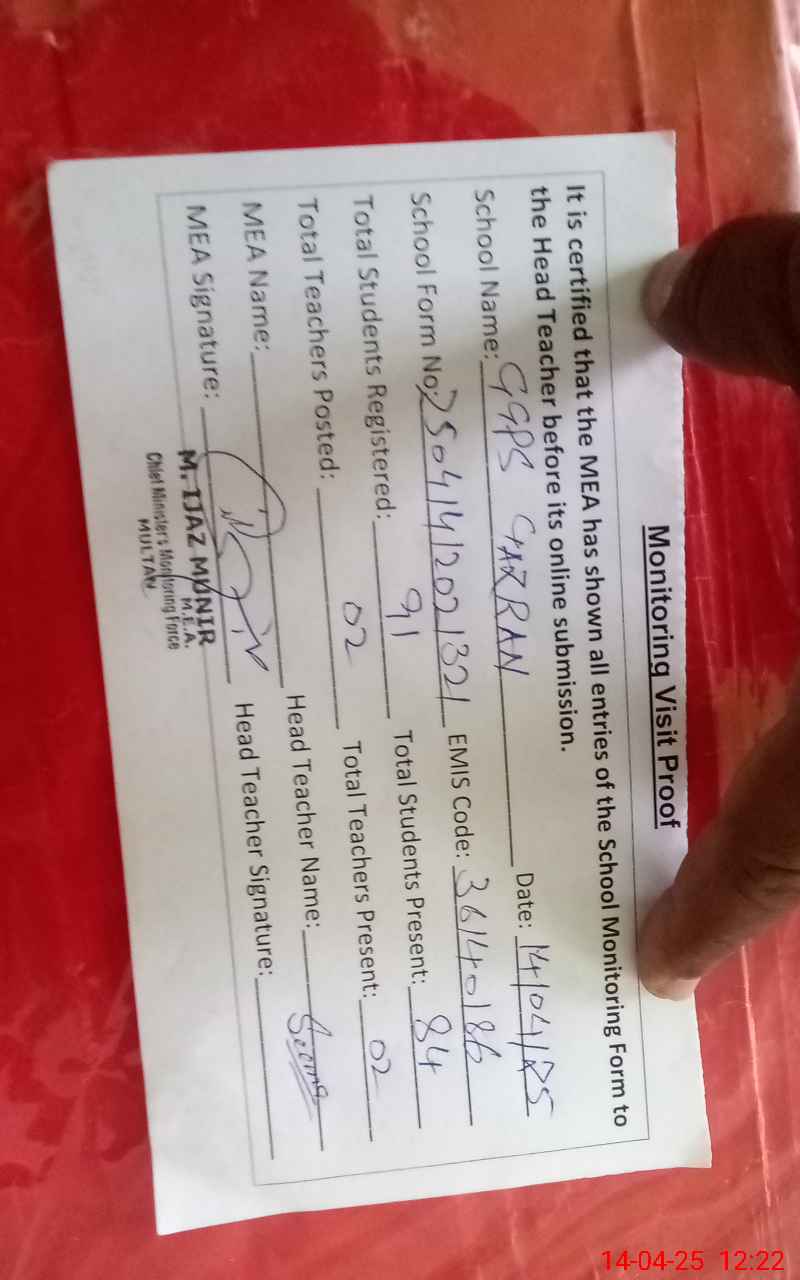 Monitoring Visit Proof
It is certified that the MEA has shown all entries of the School Monitoring Form to
the Head Teacher before its online submission.
School Name: GGPS GARRAN Date: 14/04/25
School Form No: 2504142021321 EMIS Code: 36140186
Total Students Registered: 91 Total Students Present: 84
Total Teachers Posted: 02 Total Teachers Present: 02
MEA Name: Head Teacher Name: Seema
MEA Signature: Head Teacher Signature:
M. IJAZ MUNIR
M.E.A.
Chief Minister's Monitoring Force
MULTAN
14-04-25 12:22